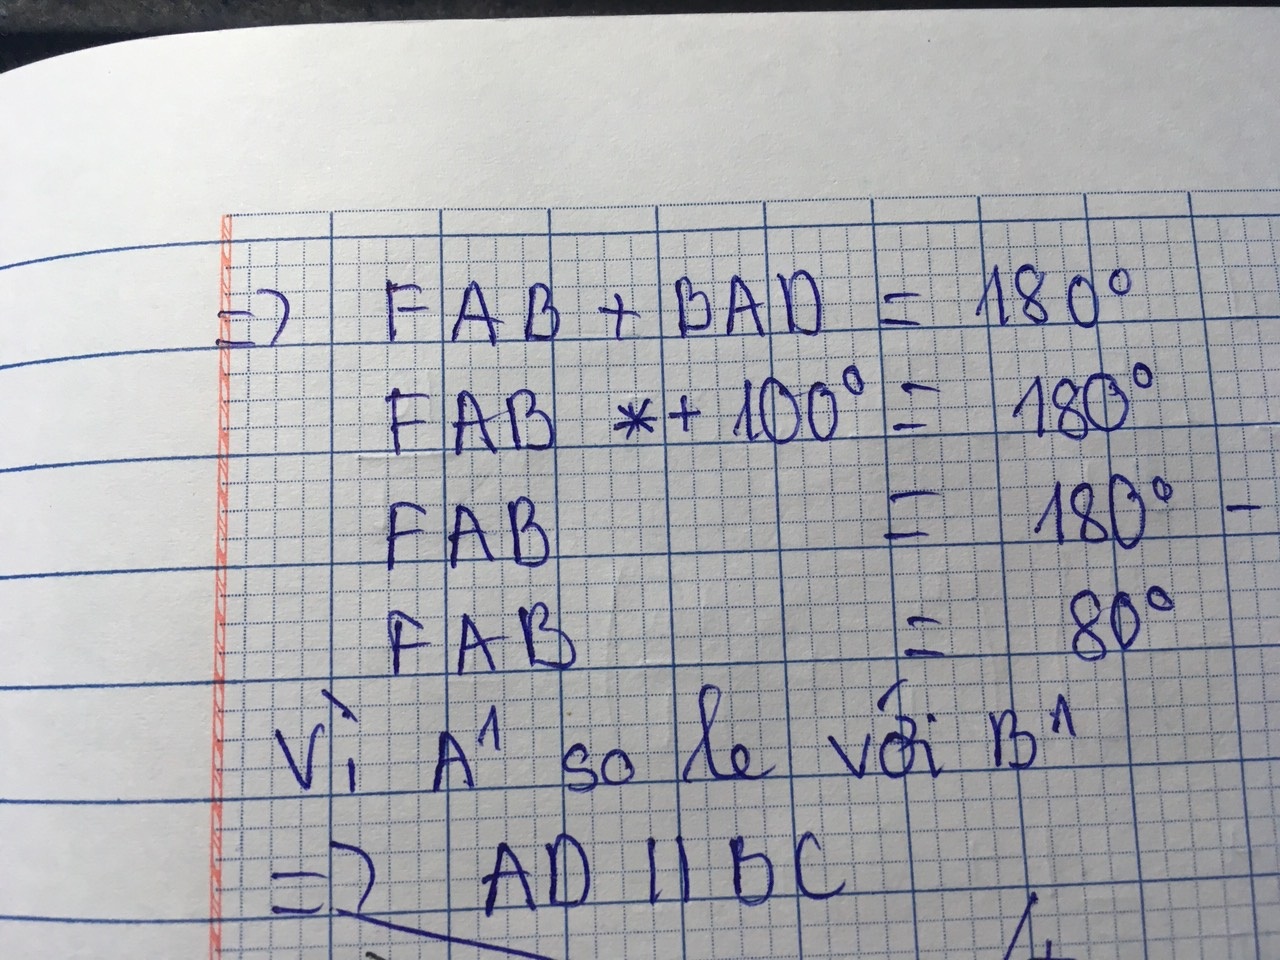 => FAB + BAD = 180°
FAB *+ 100° = 180°
FAB = 180° -
FAB = 80°
Vì A¹ so le với B¹
=> AD || BC